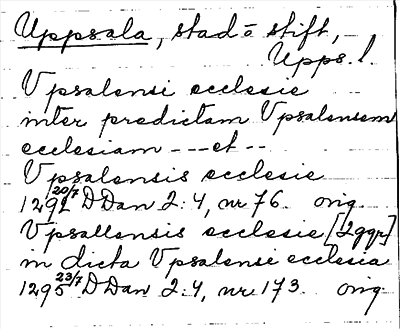 Uppsala, stad o stift,
Upps. l.
Vpsalensi ecclesie
inter predictam Vpsalensem
ecclesiam --- et --
Vpsalensis ecclesie
1292 20/7 DDan 2:4, nr 76. orig
Vpsallensis ecclesie [2ggr]
in dicta Vpsalensi ecclesia
1295 23/7 DDan 2:4, nr 173. orig.